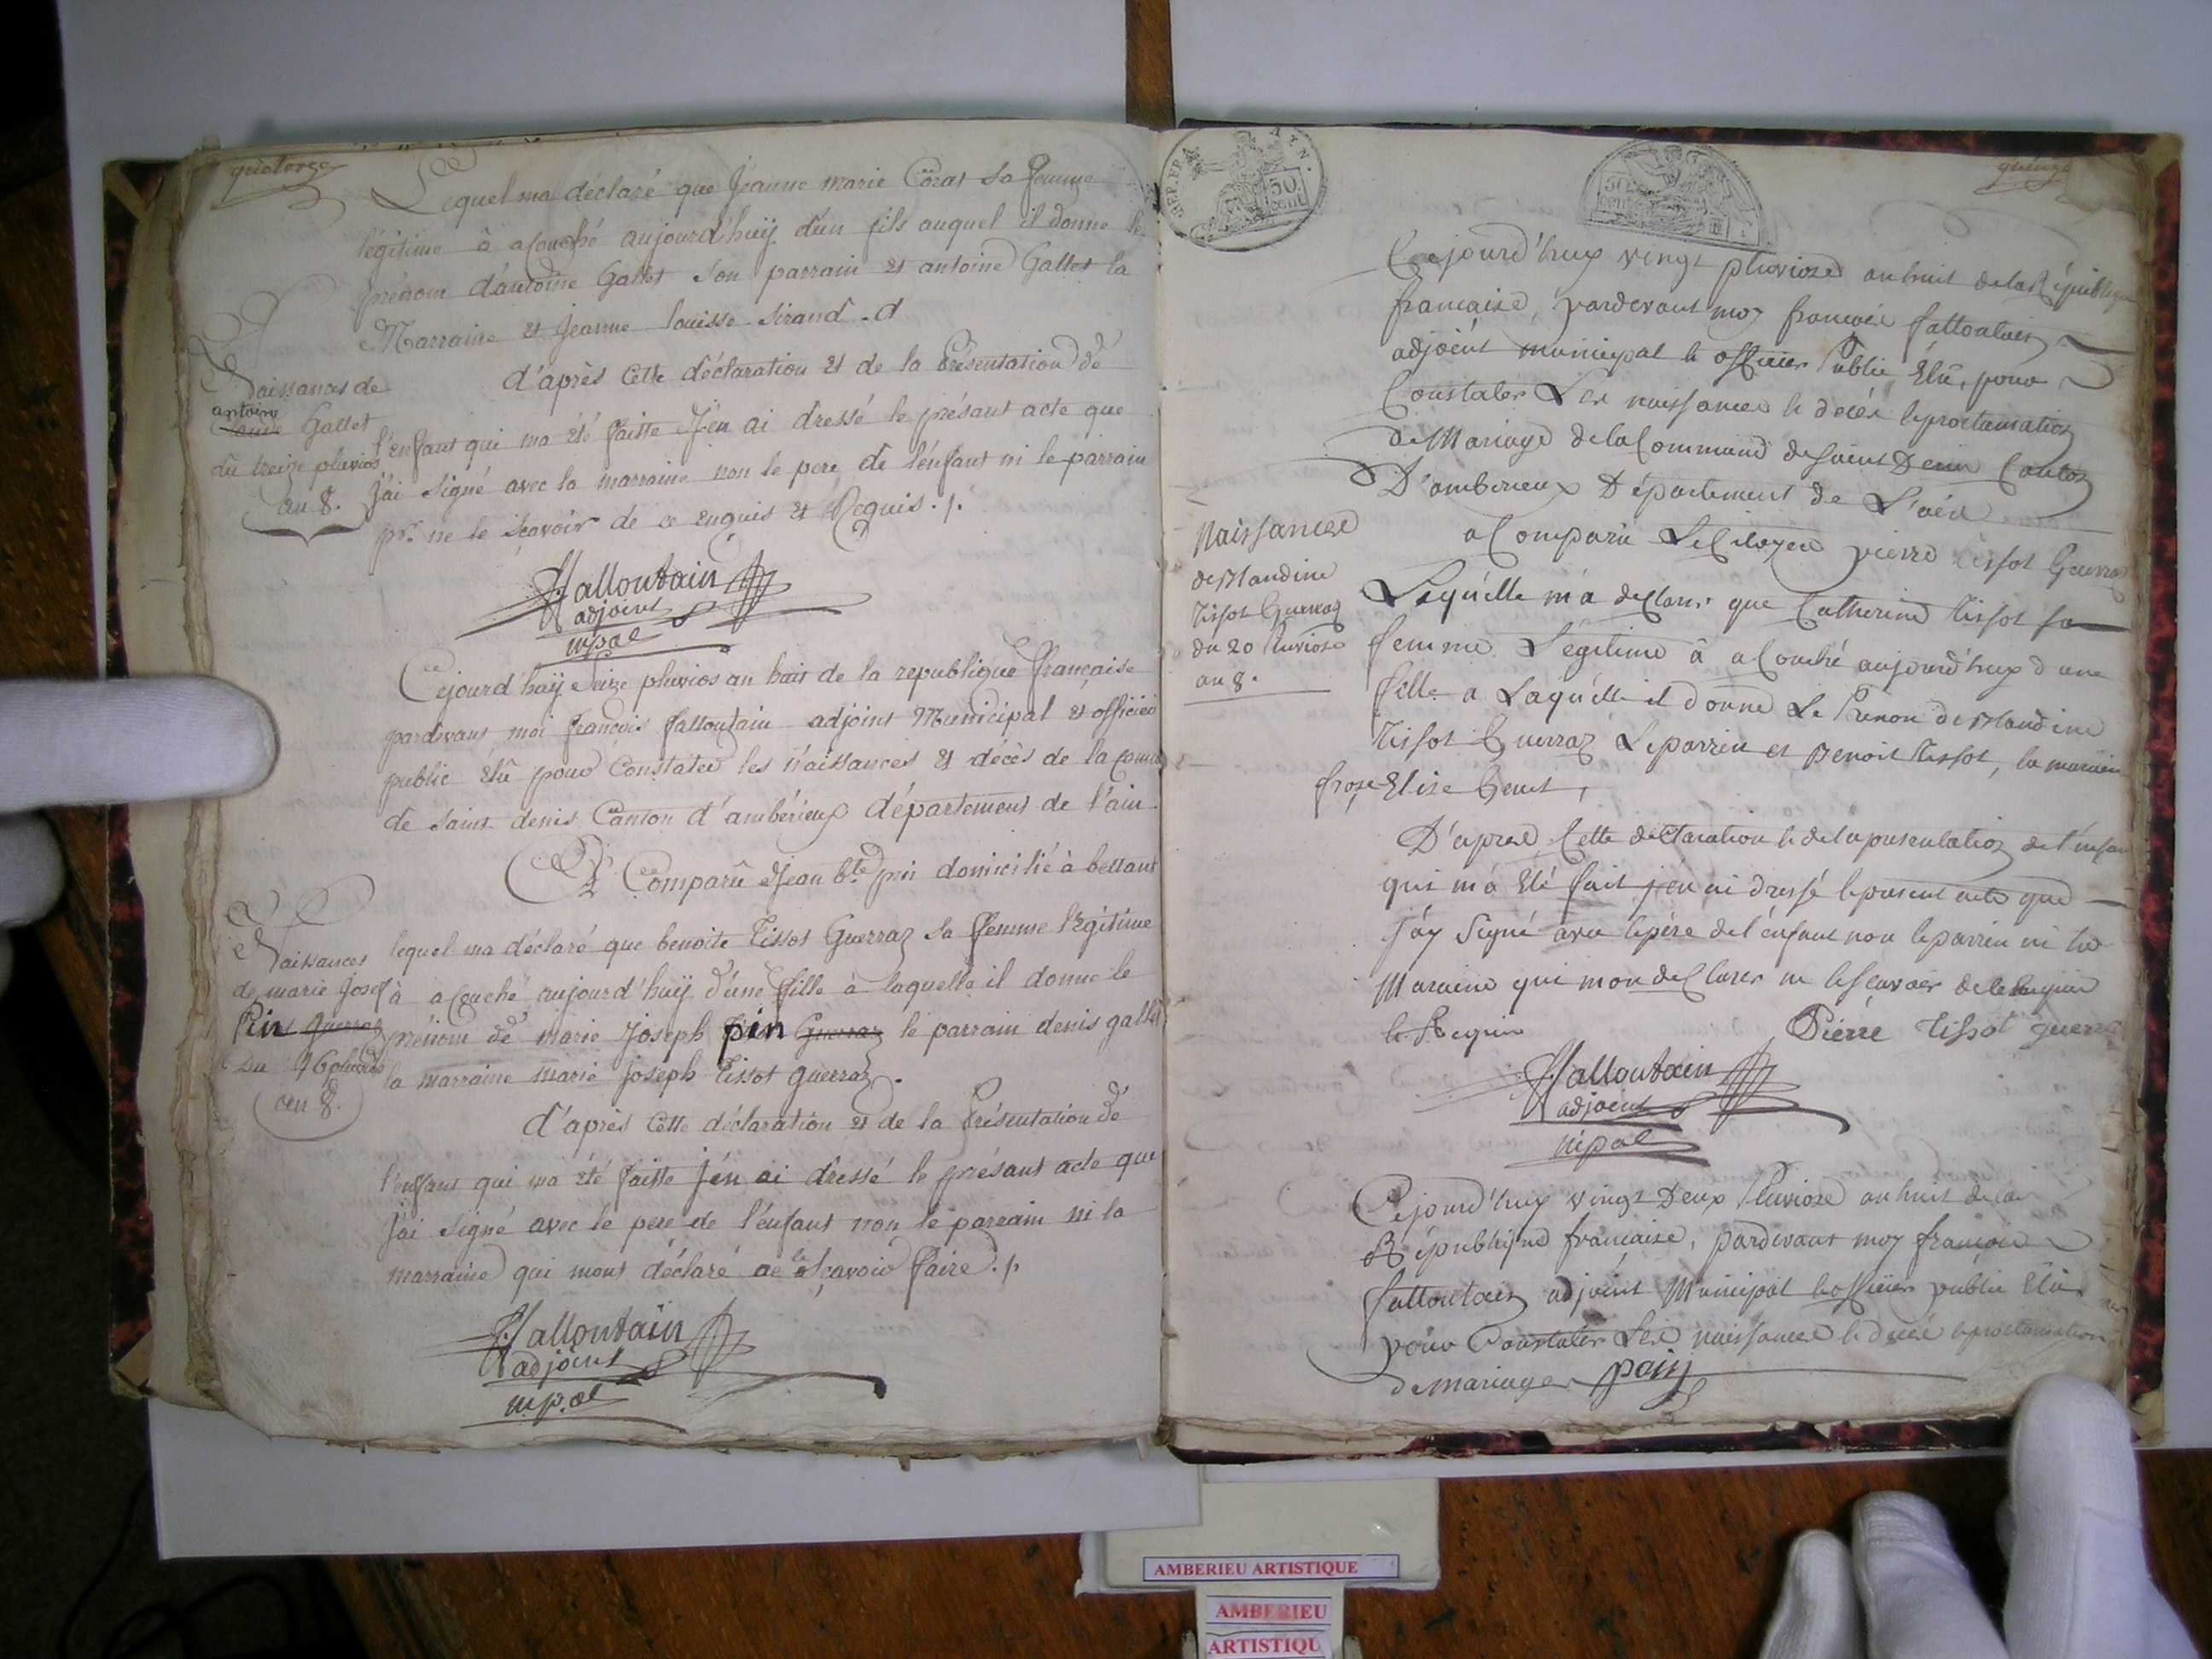 quatorze
Lequel ma déclaré que Jeanne marie Coras sa femme
légitime à acouché aujourd'huÿ d'un fils auquel il donne le
prénom d'antoine Gallet son parrain et antoine Gallet la
Marraine et Jeanne louisse Sirand. d
Naissances de
antoine
Gallet
du treize pluvios
an 8.
d'après Cette déclaration et de la Présentation de
l'enfant qui ma été faitte J'en ai dressé le présant acte que
J'ai signé avec la marraine non le pere de l'enfant ni le parrain
pr. ne le sçavoir de ce enquis et Requis ./.
falloutain
adjoint
mpal
Cejourd'huÿ Seize pluvios an huit de la republique française
pardevant moi françois falloutain adjoint Municipal et officier
public élû pour Constater les naissances et décès de la Comu
de saint denis Canton d'ambérieux département de l'ain.
Comparû Jean bte pin domicilié à bettant
Naissances
de marie Josef
Pin Guerraz
Du 16 pluvios
an 8.
lequel ma déclaré que benoite Tissot Guerraz sa femme légitime
à acouché aujourd'huÿ d'une fille à laquelle il donne le
prénom de marie Joseph pin Guerraz le parrain denis gallet
la marraine marie Joseph Tissot guerraz.
d'après Cette déclaration et de la Présentation de
l'enfant qui ma été faitte J'en ai dressé le présant acte que
J'ai signé avec le pere de l'enfant non le parrain ni la
marraine qui mont déclaré ne le sçavoir faire ./.
falloutain
adjoint
mp.al
REP. FRA.
AIN.
50
cent
quinze
Cejourd'huy vingt pluviose an huit de la République
francaise, pardevant moy francois falloutain
adjoint municipal & officier Public Elû, pour
Constater Les naissances & decés & proclamation
de Mariage de la Commune de saint Denis Canton
D'amberieux Département de L'ain
Naissance
de Blandine
Tissot Guerraz
du 20 Pluviose
an 8.
a Comparû Le Citoyen pierre tissot Guerraz
Lequelle m'a desclaré que Catherine tissot sa
femme Légitime à acouché aujourd'huy d'une
fille a Laquelle il donne Le Prenon de Blandine
tissot Guerraz Le parrin et Benoit tissot, la maraine
Elise Genet,
D'aprese Cette declaration & de la presentation de l'enfan
qui m'a Eté fait j'en ai dressé le present acte que
j'ay Signé avec le père de l'enfant non le parrin ni la
Maraine qui mon desclarer ne le seavoir de le enquis
& Requis
Pierre tissot guerra
falloutain
adjoint
mpal
Cejourd'huy vingt Deux Pluviose an huit de la
République française, pardevant moy francois
falloutain adjoint Municipal & officier public Elû
pour Constater Les naissances & decés & proclamation
de mariage
AMBERIEU ARTISTIQUE
AMBERIEU
ARTISTIQU